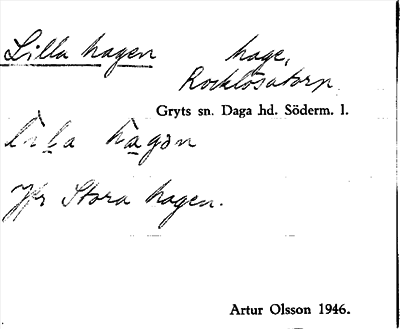 Lilla hagen hage,
Rocklösatorp.
Gryts sn. Daga hd. Söderm. l.
hagən
Jfr Stora hagen.
Artur Olsson 1946.